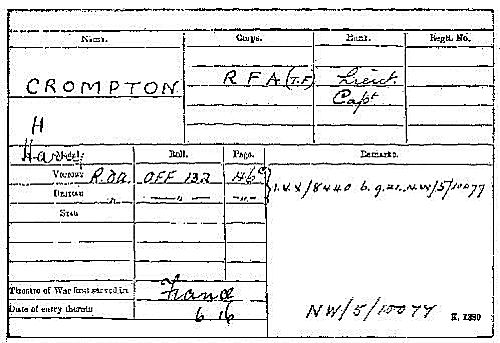 Name. Corps. Rank. Regtl. No.
CROMPTON R F A (T.F) Lieut.
Capt
H
Harry
Medal. Roll. Page. Remarks.
Victory R.F.A. OFF 132 146c
British " — " — — " —
Star
NW/5/10077
Theatre of War first served in France
Date of entry therein 6.16
NW/5/10077 K. 1380